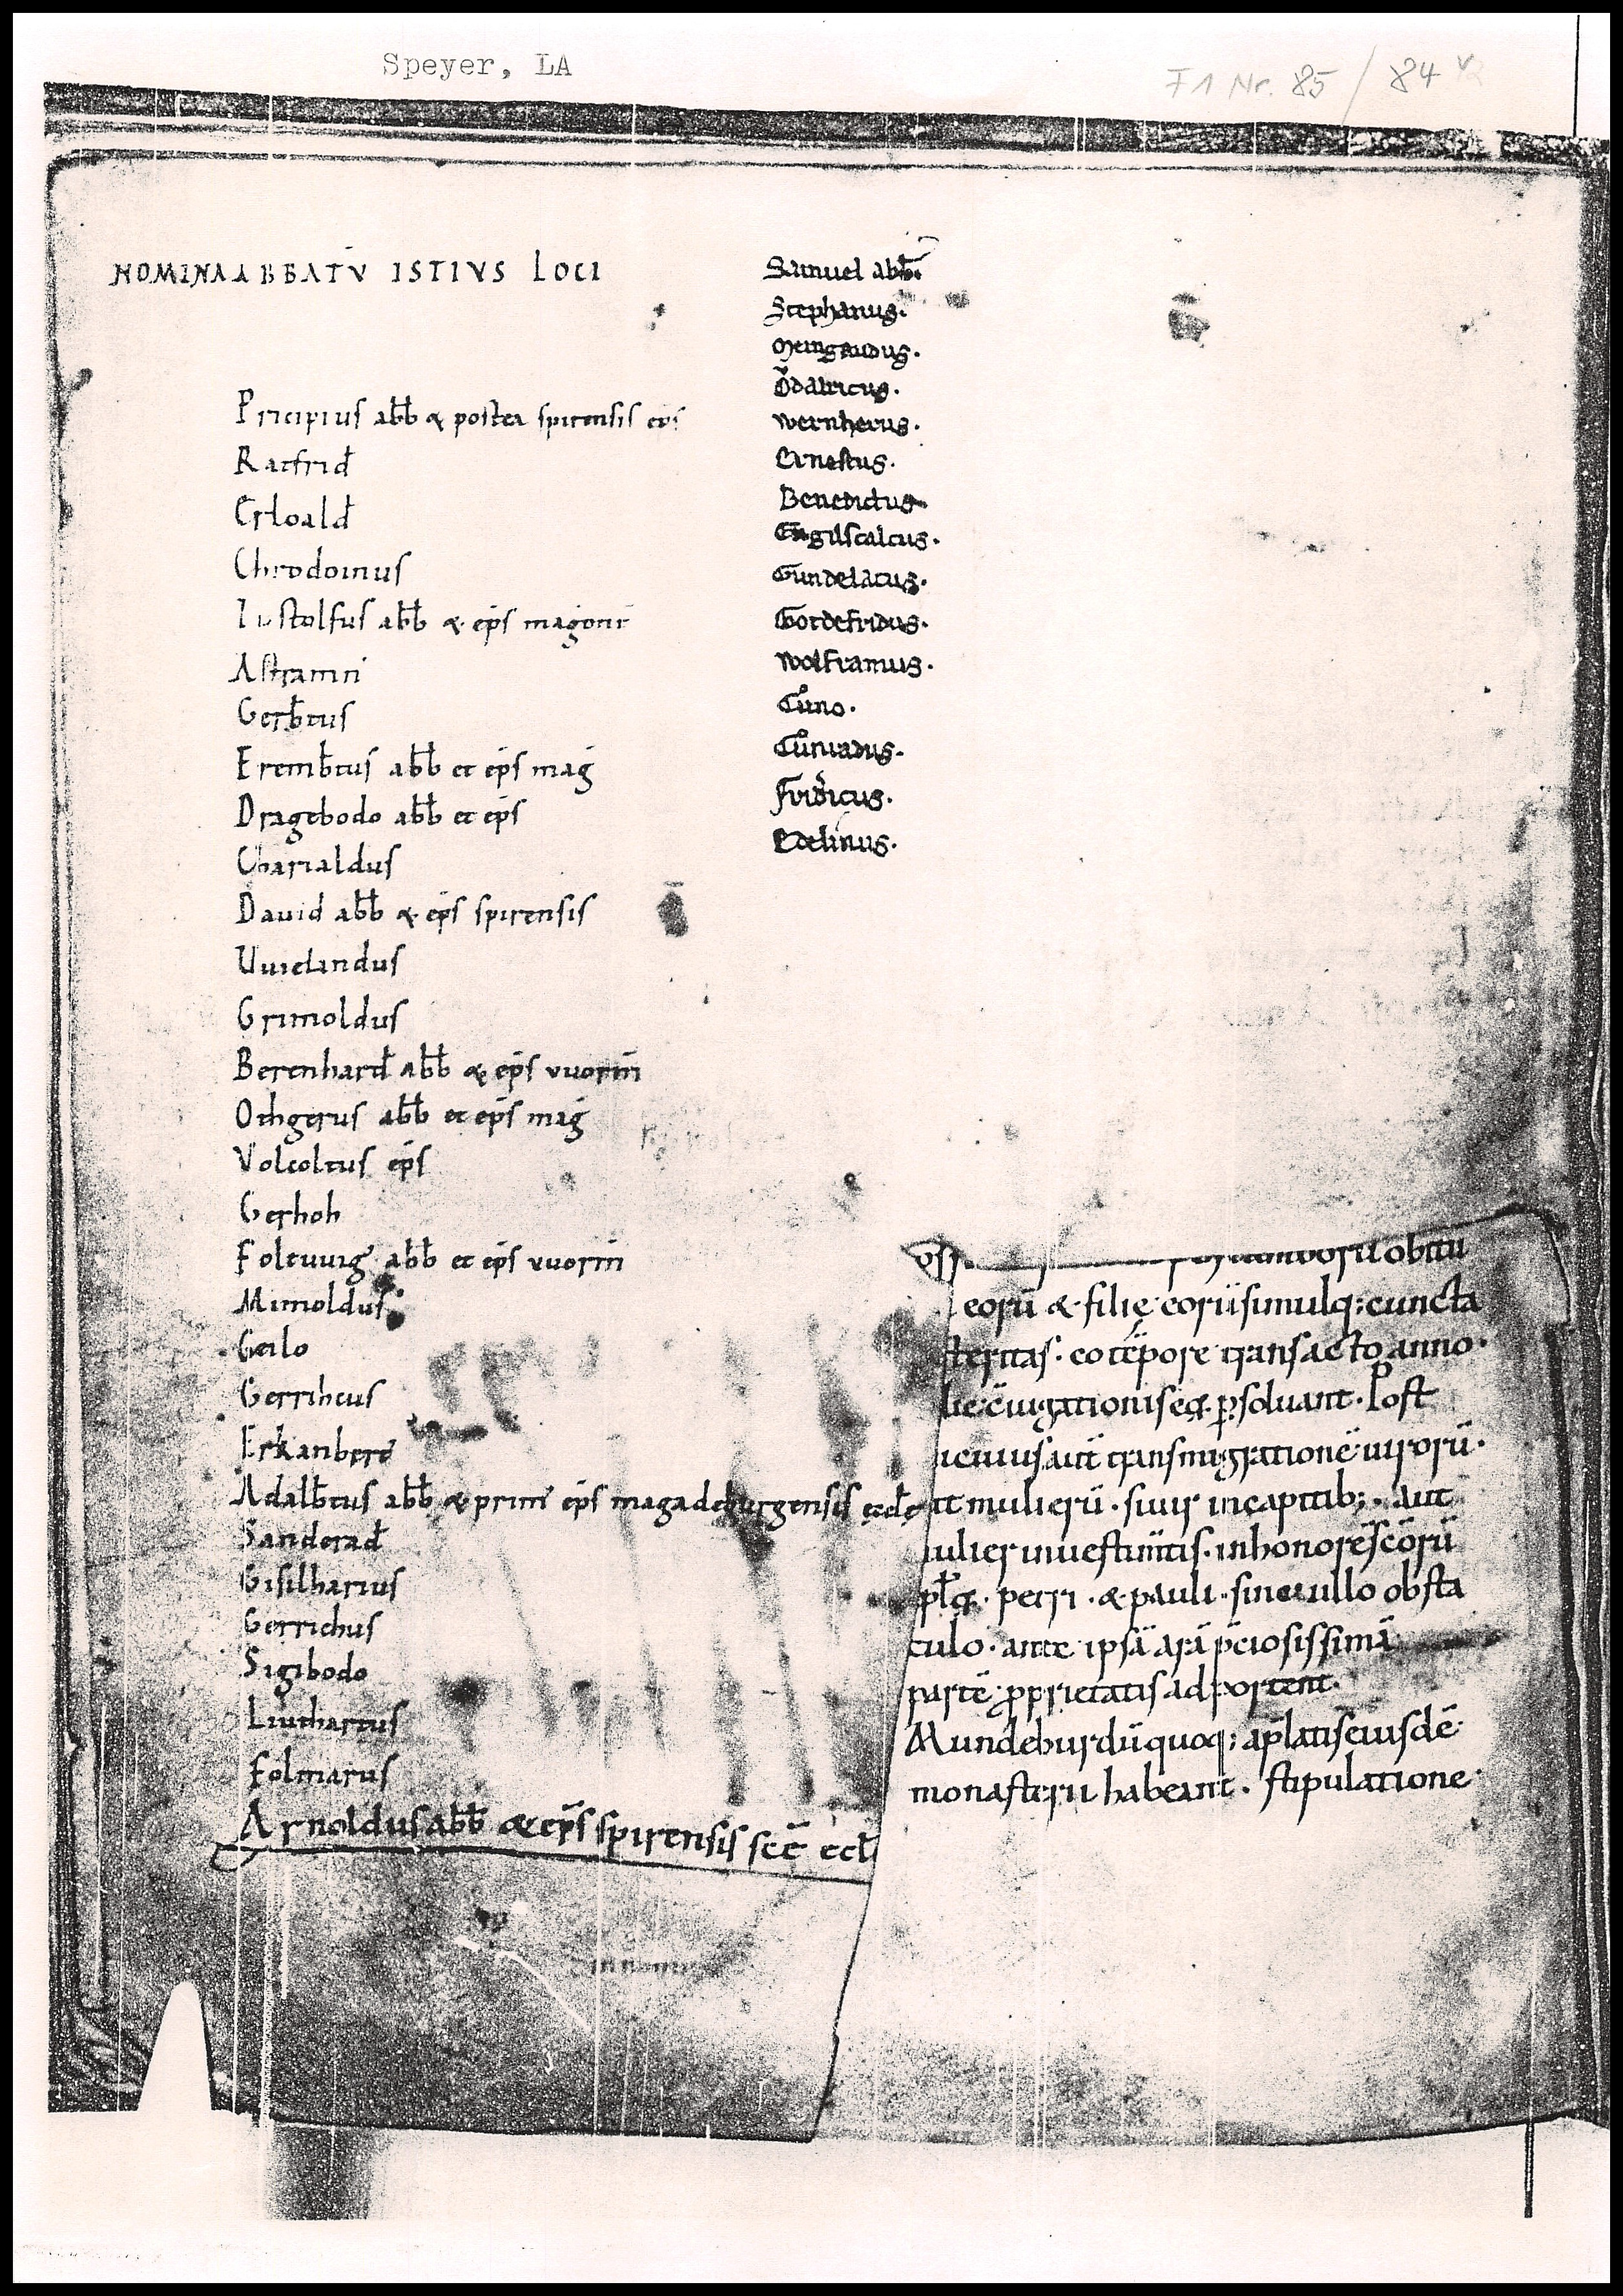 Speyer, LA
F1 Nr. 85 / 84 v
NOMINA ABBATŪ ISTIVS LOCI
Pricipius abb̄ & postea spirensis ep̄s
Ratfrid̄
Erloald̄
Chrodoinus
Lustolfus abb̄ & ep̄s magont̄
Astramn̄
Gerb̄tus
Eremb̄tus abb̄ et ep̄s maḡ
Dragebodo abb̄ et ep̄s
Charialdus
Dauid abb̄ & ep̄s spirensis
Uuielandus
Grimoldus
Berenhard̄ abb̄ & ep̄s vuorm̄
Othgerus abb̄ et ep̄s maḡ
Volcoltus ep̄s
Gerhoh
Folcuuig abb̄ et ep̄s vuorm̄
Mimoldus
Geilo
Gerrihcus
Erkanbert
Adalb̄tus abb̄ & prim̄ ep̄s magadeburgensis eccle
Sanderad̄
Gisilharius
Gerrichus
Sigibodo
Liuthartus
Folmarus
Arnoldus abb̄ & ep̄s spirensis scē eccl̄
Samuel abb̄.
Stephanus.
Meingaudus.
Ŏdalricus.
Wernherus.
Ernestus.
Benedictus.
Engilscalcus.
Gundelacus.
Gotdefridus.
Wolframus.
Cůno.
Cůnradus.
Frid̄icus.
Edelinus.
obitu
eorū & filię eorū simulq; cuncta
steritas. eo tēpore transacto anno.
iugationis eq̄ p̱soluant. Post
aut̄ transmigrationē uirorū.
at mulierū. si uir in capitib;. aut
mulier in uestim̄tis. in honore sc̄orū
ap̄loꝝ. petri. & pauli. sine ullo obsta
culo. ante ipsā arā p̄ciosissimā
partē p̱prietatis adportent.
Mundeburdū quoq; a p̄latis eiusdē
monasterii habeant. stipulatione